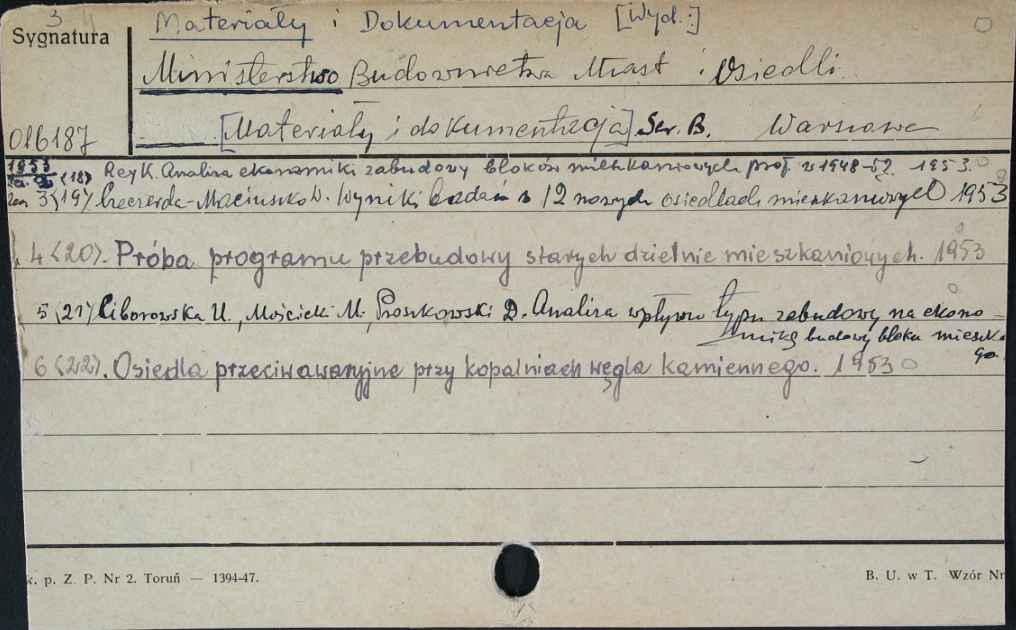 3
Sygnatura
Materiały i Dokumentacja [Wyd.:]
Ministerstwo Budownictwa Miast i Osiedli
016187
[Materiały i dokumentacja] Ser. B. Warszawa
1953
(18) Rey K. Analiza ekonomiki zabudowy bloków mieszkaniowych proj. w 1948-52. 1953.
3 (19) Czeczerda-Maciuszko W. Wyniki badań w 12 nowych osiedlach mieszkaniowych 1953
4 (20). Próba programu przebudowy starych dzielnic mieszkaniowych. 1953
5 (21) Ciborowska U., Mójcicki M., Proszkowski D. Analiza wpływu typu zabudowy na ekono-
mikę budowy bloku mieszka
go.
6 (22). Osiedla przeciwawaryjne przy kopalniach węgla kamiennego. 1953
k. p. Z. P. Nr 2. Toruń — 1394-47.
B. U. w T. Wzór Nr